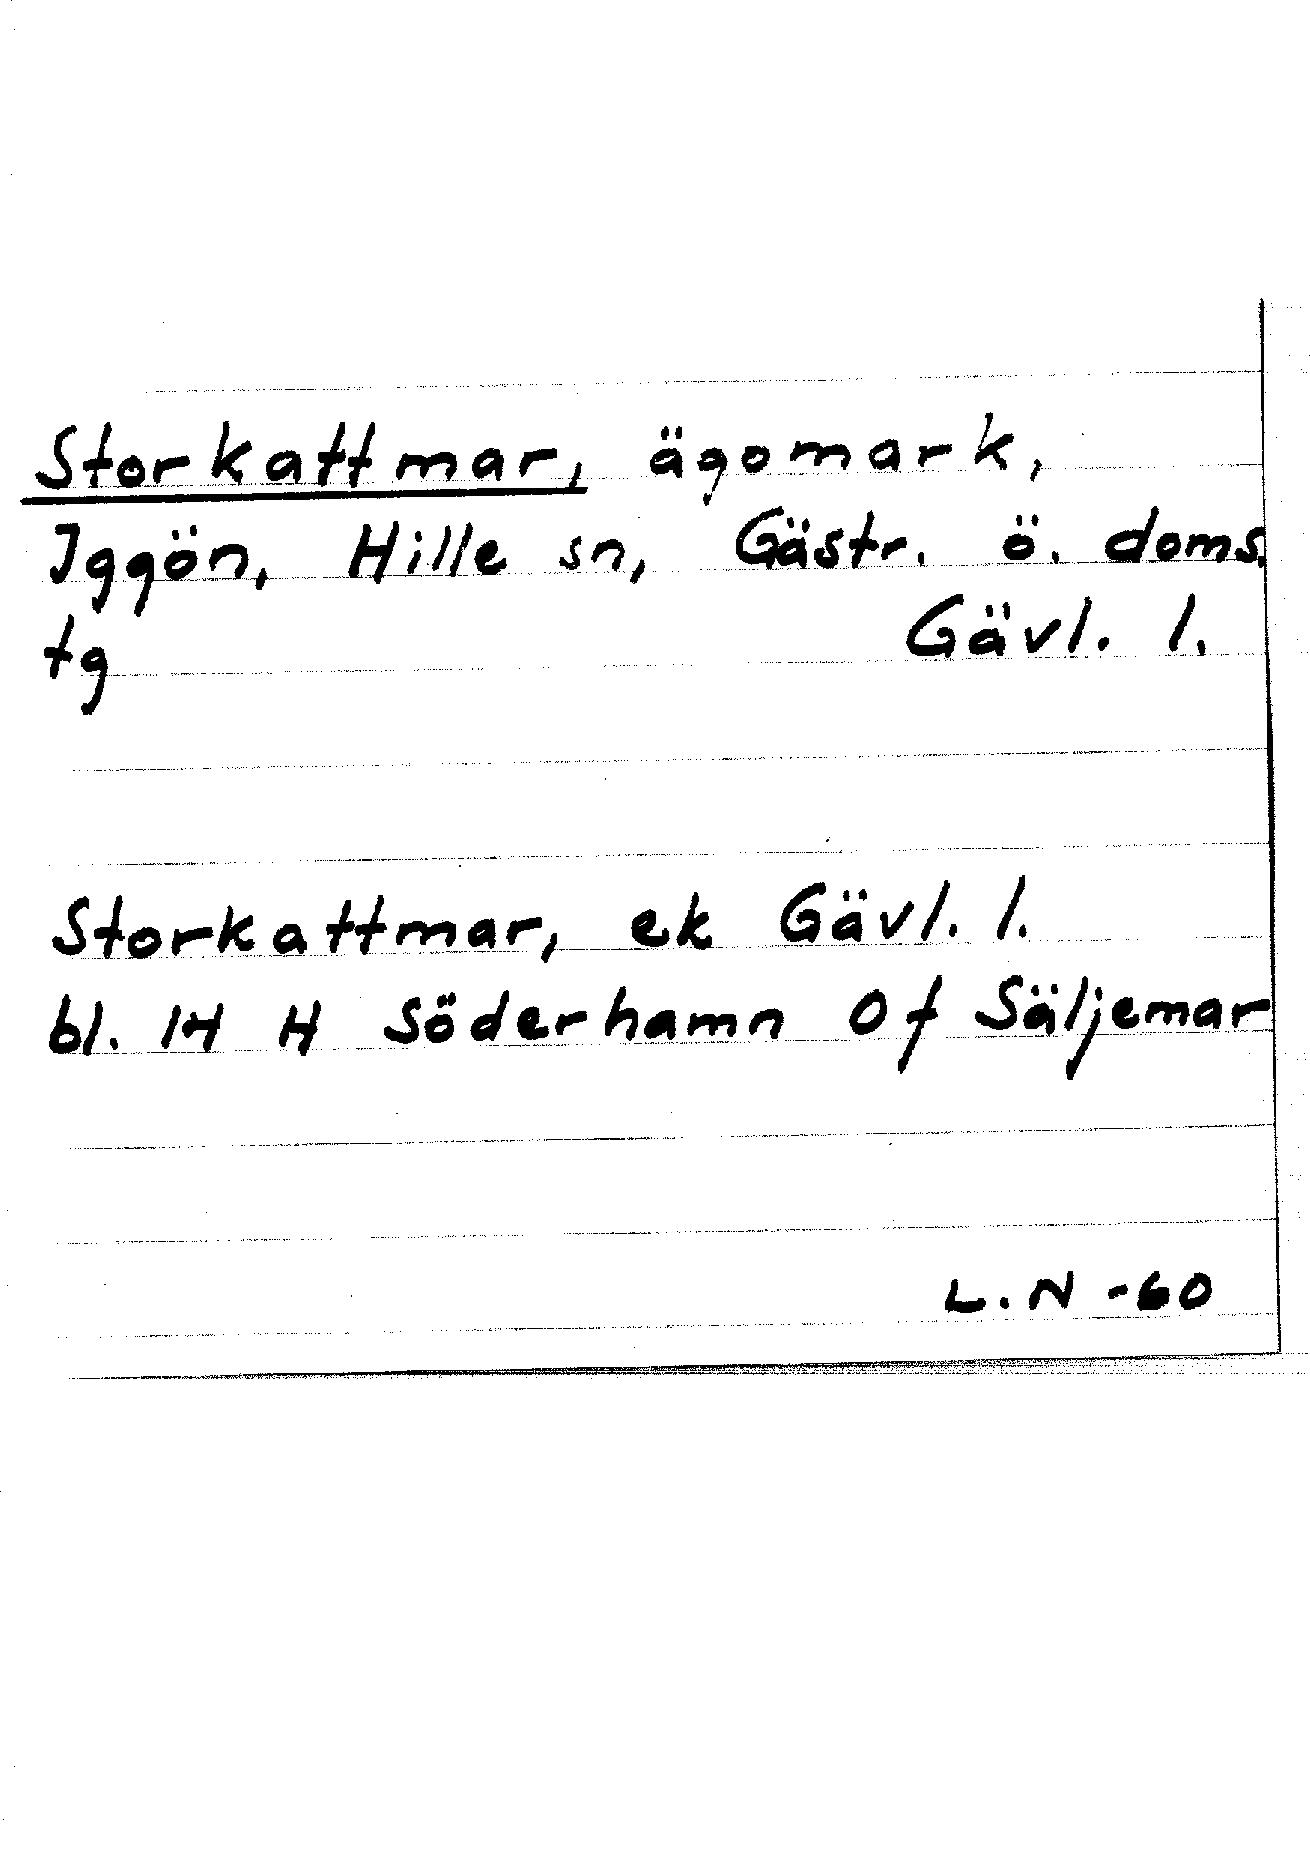 Storkattmar, ägomark,
Iggön, Hille sn, Gästr. ö. doms.
tg Gävl. l.
Storkattmar, ek Gävl. l.
bl. 14 H Söderhamn Of Säljemar
L.N -60